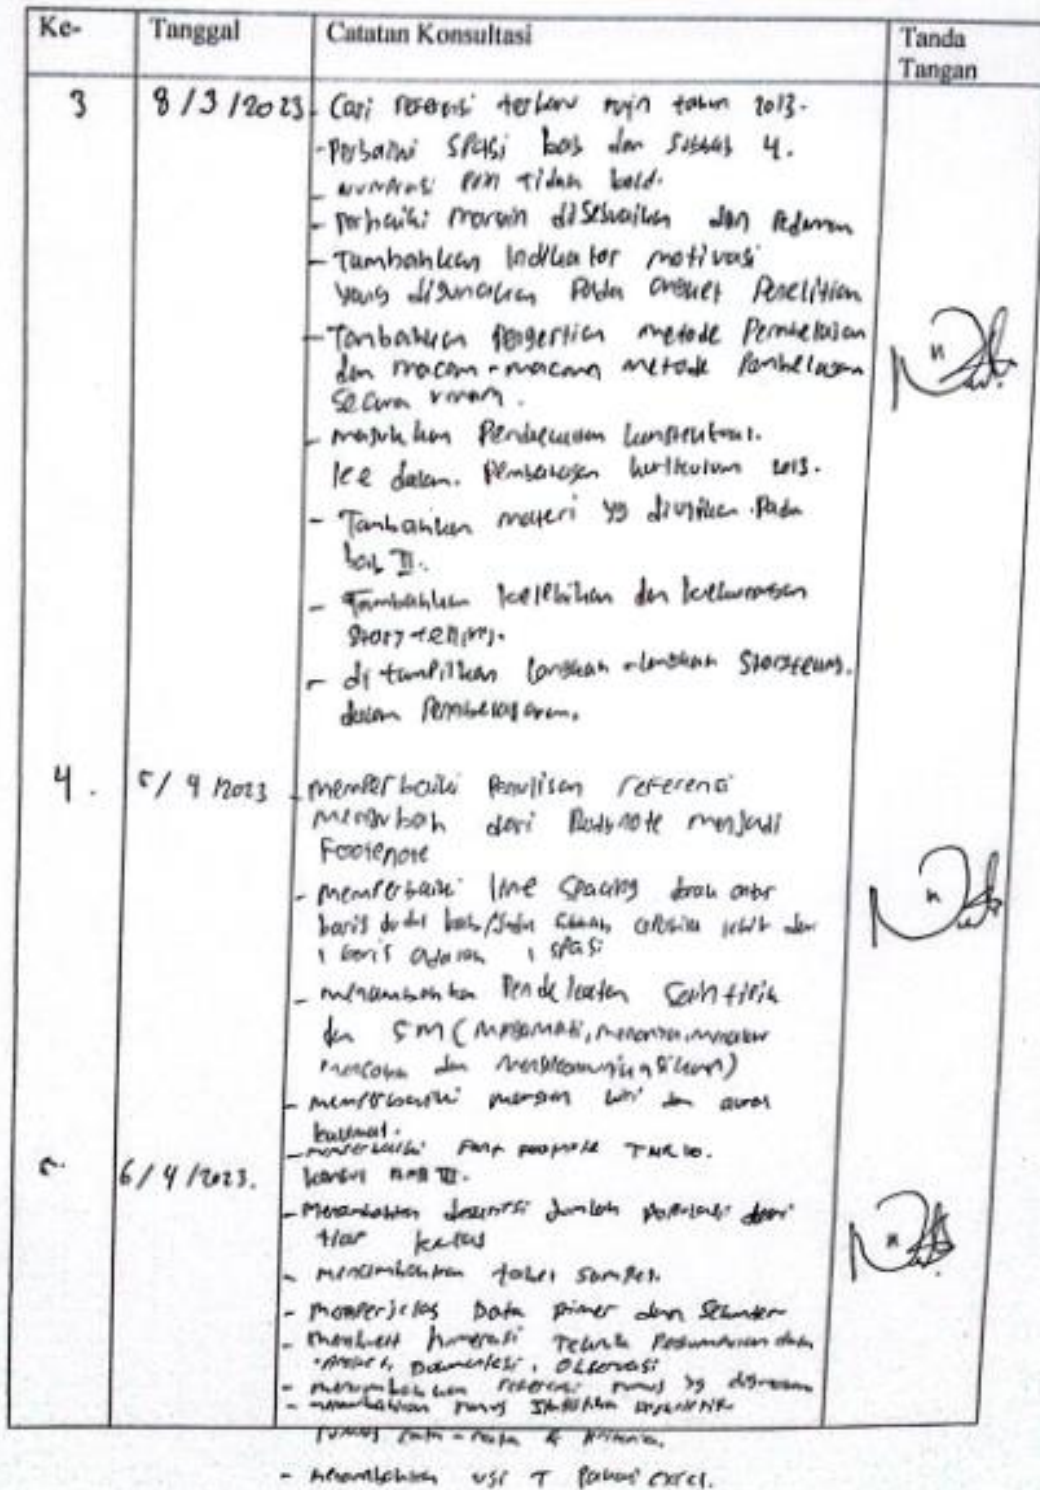 Ke- Tanggal Catatan Konsultasi Tanda Tangan
3 8/3/2023 - Cari referensi terbaru min tahun 2013.
- Perbaiki spasi bab dan subbab 4.
- numerasi poin tidak bold.
- perbaiki margin disesuaikan dgn Pedoman
- Tambahkan indikator motivasi
yang digunakan pada angket Penelitian
- Tambahkan pengertian metode Pembelajaran
dan macam-macam metode Pembelajaran
secara umum.
- masukkan Pendekatan kontekstual.
ke dalam. Pembahasan kurikulum 2013.
- Tambahkan materi yg diujikan. Pada
bab II.
- Tambahkan kelebihan dan kekurangan
Storytelling.
- ditampilkan langkah-langkah Storytelling.
dalam Pembelajaran.
4. 5/4/2023 - memperbaiki Penulisan referensi
mengubah dari Bodynote menjadi
Footenote
- memperbaiki line spacing antar
baris judul bab/ lebih dari
1 baris adalah 1 spasi
- menambahkan Pendekatan Saintifik
dan 5M (mengamati, menanya, menalar
mencoba dan mengkomunikasikan)
- memperbaiki margin kiri dan
kalimat.
- memperbaiki Font footnote TNR 10.
5. 6/4/2023. BAB III.
- Menambahkan deskripsi jumlah populasi dari
tiap kelas
- menambahkan tabel sampel.
- memperjelas Data primer dan Sekunder
- membuat numerasi Teknik Pengumpulan data
Angket, Dokumentasi, Observasi
- menambahkan referensi rumus yg digunakan
- menambahkan rumus Statistika
rumus rata-rata & kriteria.
- menambahkan uji T Pakai excel.